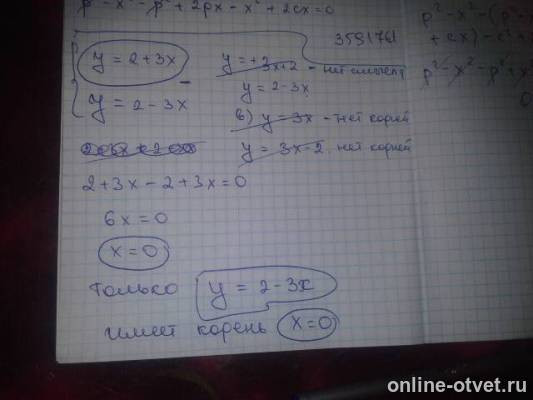 p² - x² - p² + 2px - x² + 2cx = 0
3591761
y = 2 + 3x
y = 2 - 3x
y = +3x+2 - нет
y = 2 - 3x
в) y = 3x - нет корней
y = 3x - 2 нет корней
2 + 3x - 2 + 3x = 0
6x = 0
x = 0
только y = 2 - 3x
имеет корень x = 0
p² - x² - (p² - x
+ cx) - c² +
p² - x² - p² + x²
0
online-otvet.ru